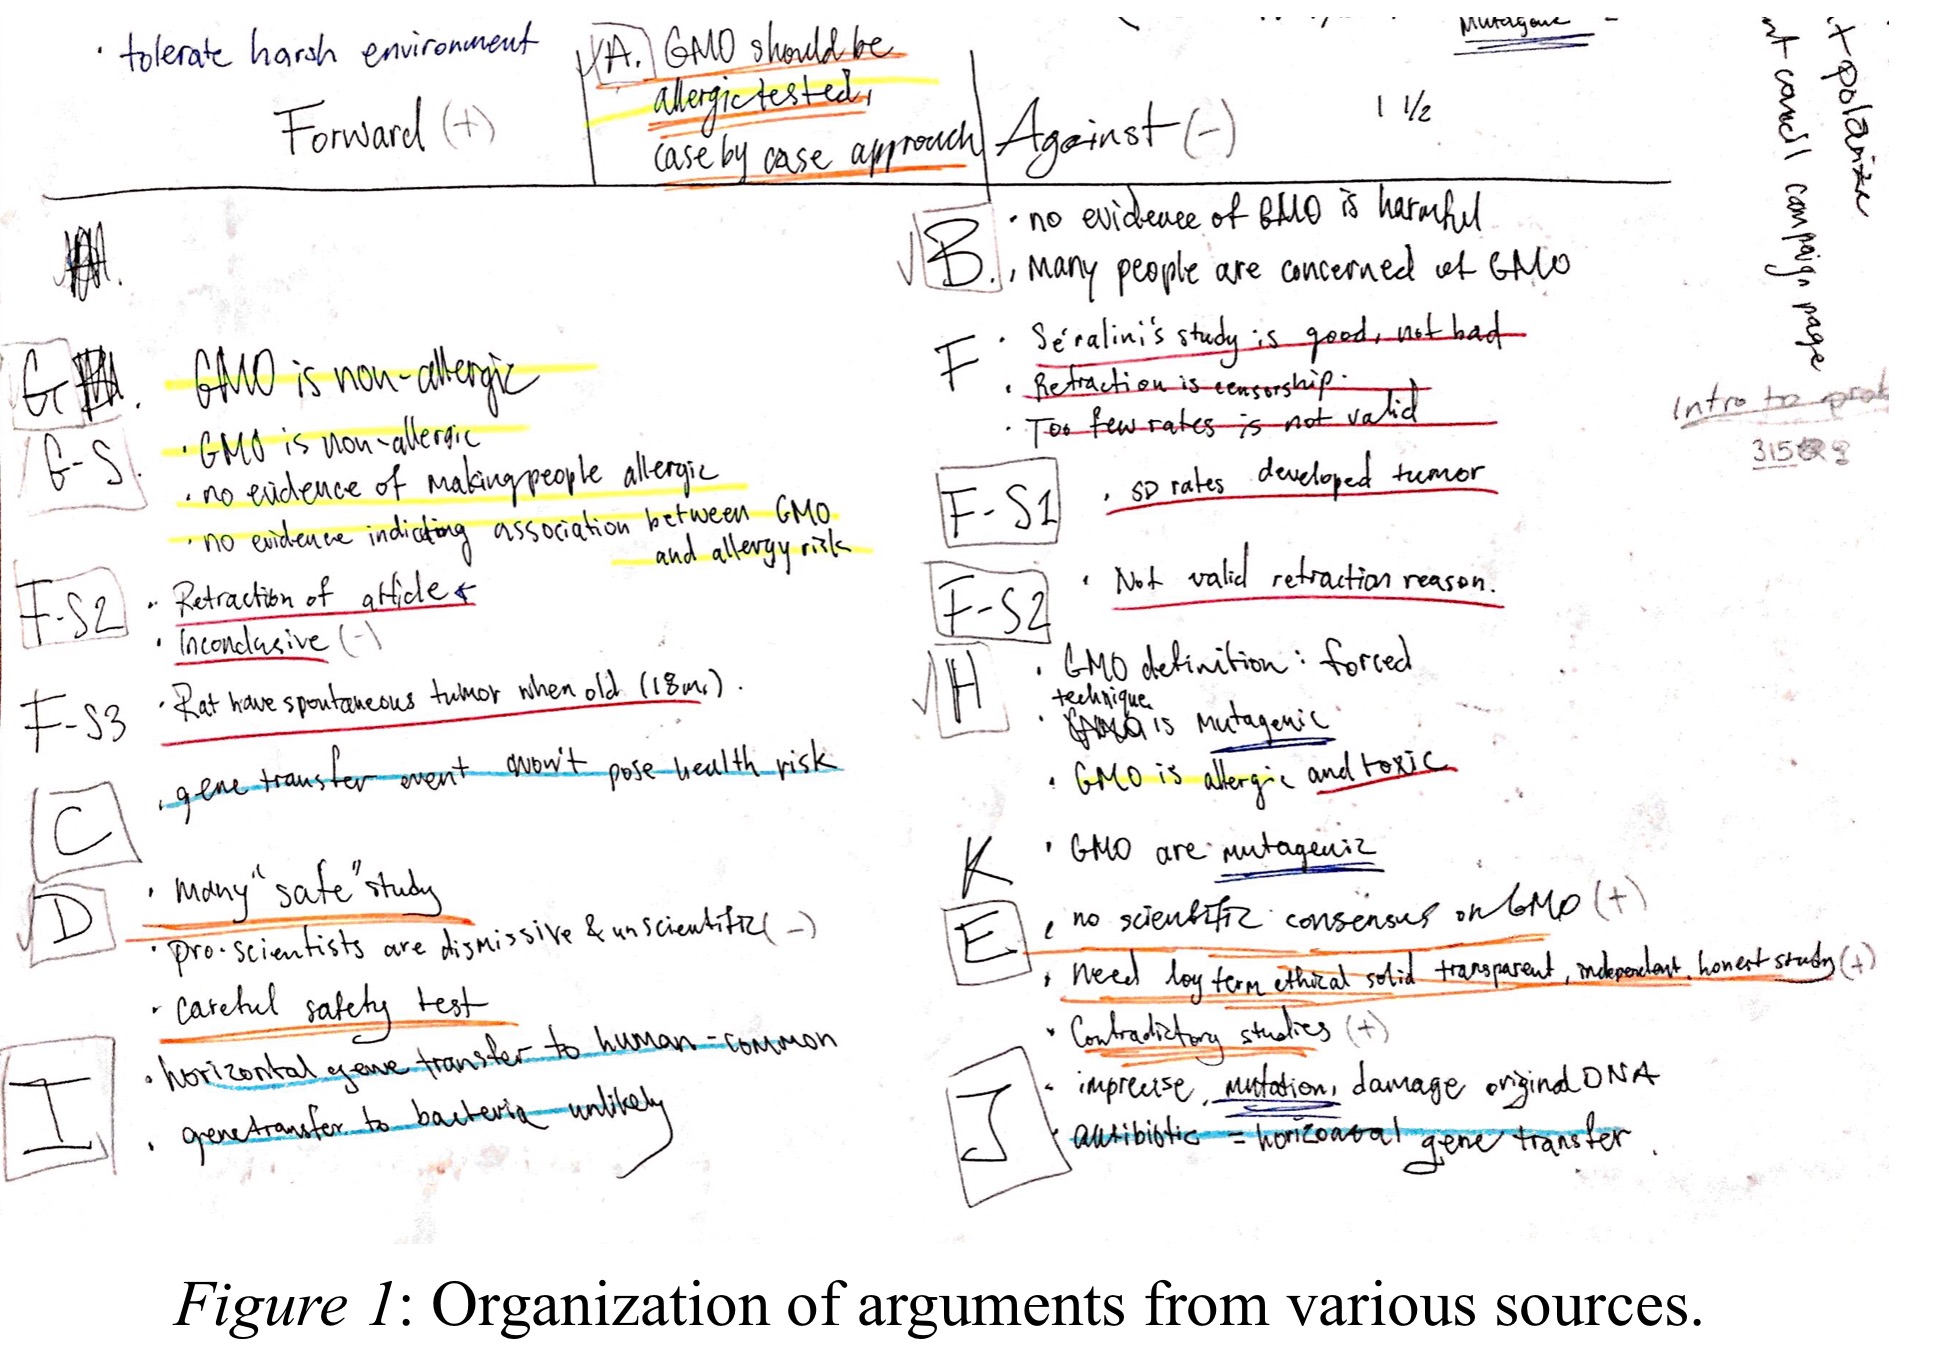 · tolerate harsh environment
Forward (+)
A. GMO should be
allergic tested,
case by case approach
Against (-)
1 1/2
Mutagenic
t polarize
nt council campaign page
Intro to prob
315
G.
GMO is non-allergic
G-S.
· GMO is non-allergic
· no evidence of making people allergic
· no evidence indicating association between GMO
and allergy risk
F-S2
· Retraction of article
· Inconclusive (-)
F-S3
· Rat have spontaneous tumor when old (18m.).
C
· gene transfer event won't pose health risk
D
· many "safe" study
· pro-scientists are dismissive & unscientific (-)
· careful safety test
I
· horizontal gene transfer to human = common
· gene transfer to bacteria unlikely
B.
· no evidence of GMO is harmful
· many people are concerned of GMO
F
· Séralini's study is good, not bad
· Retraction is censorship.
· Too few rates is not valid
F-S1
· SD rates developed tumor
F-S2
· Not valid retraction reason.
H
· GMO definition: forced
technique
· is mutagenic
· GMO is allergic and toxic
K
· GMO are mutagenic
E
· no scientific consensus on GMO (+)
· Need log term ethical solid transparent, independent, honest study (+)
· Contradictory studies (+)
J
· imprecise, mutation, damage original DNA
· antibiotic = horizontal gene transfer.
Figure 1: Organization of arguments from various sources.